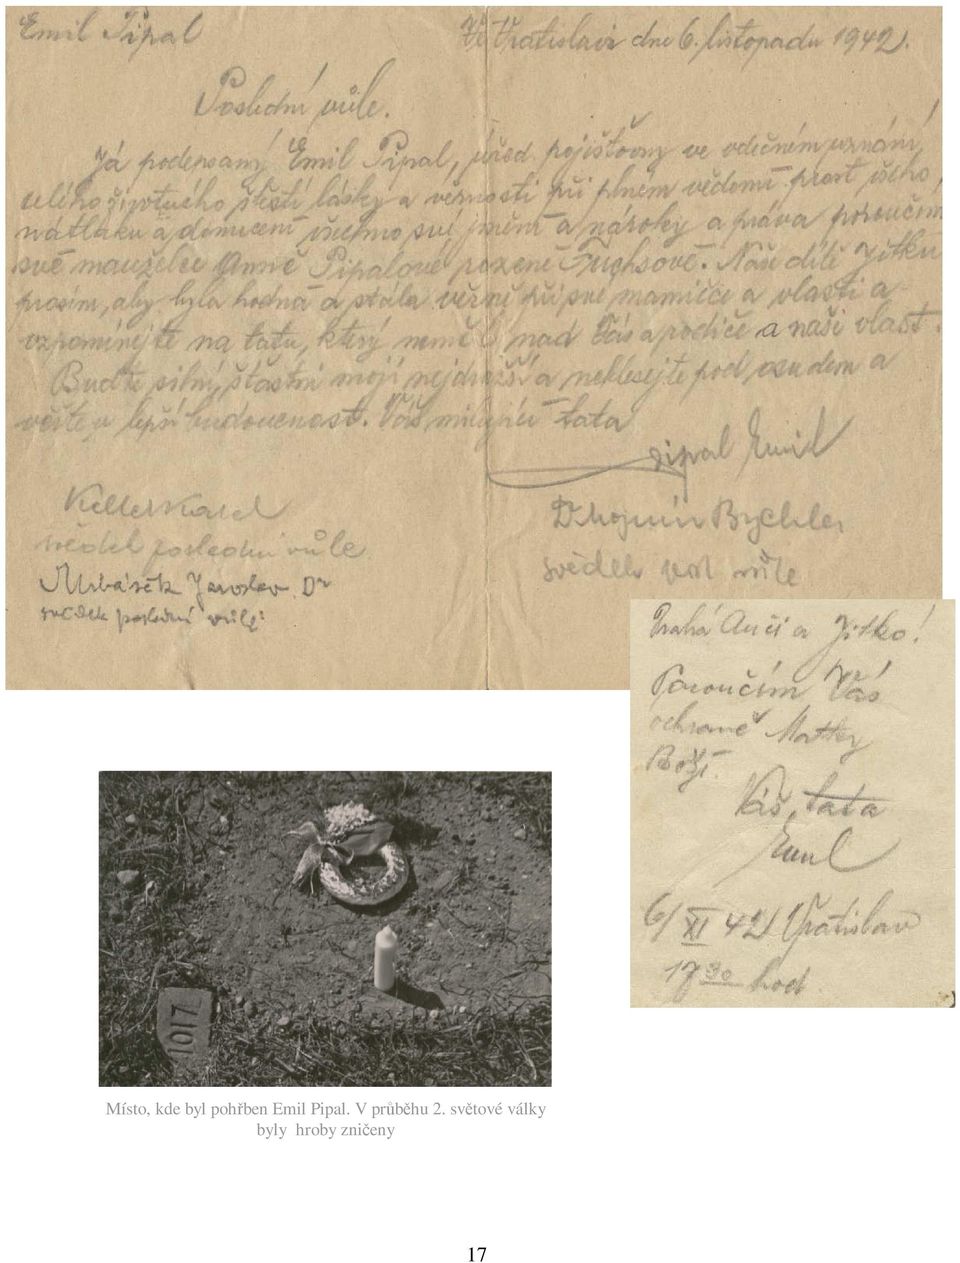 Emil Pipal
Ve Vratislavi dne 6. listopadu 1942.
Poslední vůle.
Já podepsaný Emil Pipal, úřed. pojišťovny ve vděčném uznání,
celého životního štěstí lásky a věrnosti při plném vědomí prost všeho
nátlaku a donucení všechno své jmění a nároky a práva poroučím
své manželce Anně Pipalové rozené Fuchsové. Naše dítě Jitku
prosím, aby byla hodná a stála věrně při své mamičce a vlasti a
vzpomínejte na tatu, který neměl nad Vás a rodiče a naši vlast.
Buďte silní, šťastní moji nejdražší a neklesejte pod osudem a
věřte v lepší budoucnost. Váš milující tata
Pipal Emil
Keller Karel
svědek poslední vůle
Jaroslav Dr
svědek poslední vůle
Bychler
svědek posl vůle
Drahá Anči a Jitko!
Poroučím Vás
ochraně Matky
Boží.
Váš tata
Emil
6/XI 42 Vratislav
17 30 hod.
1017
Místo, kde byl pohřben Emil Pipal. V průběhu 2. světové války
byly hroby zničeny
17